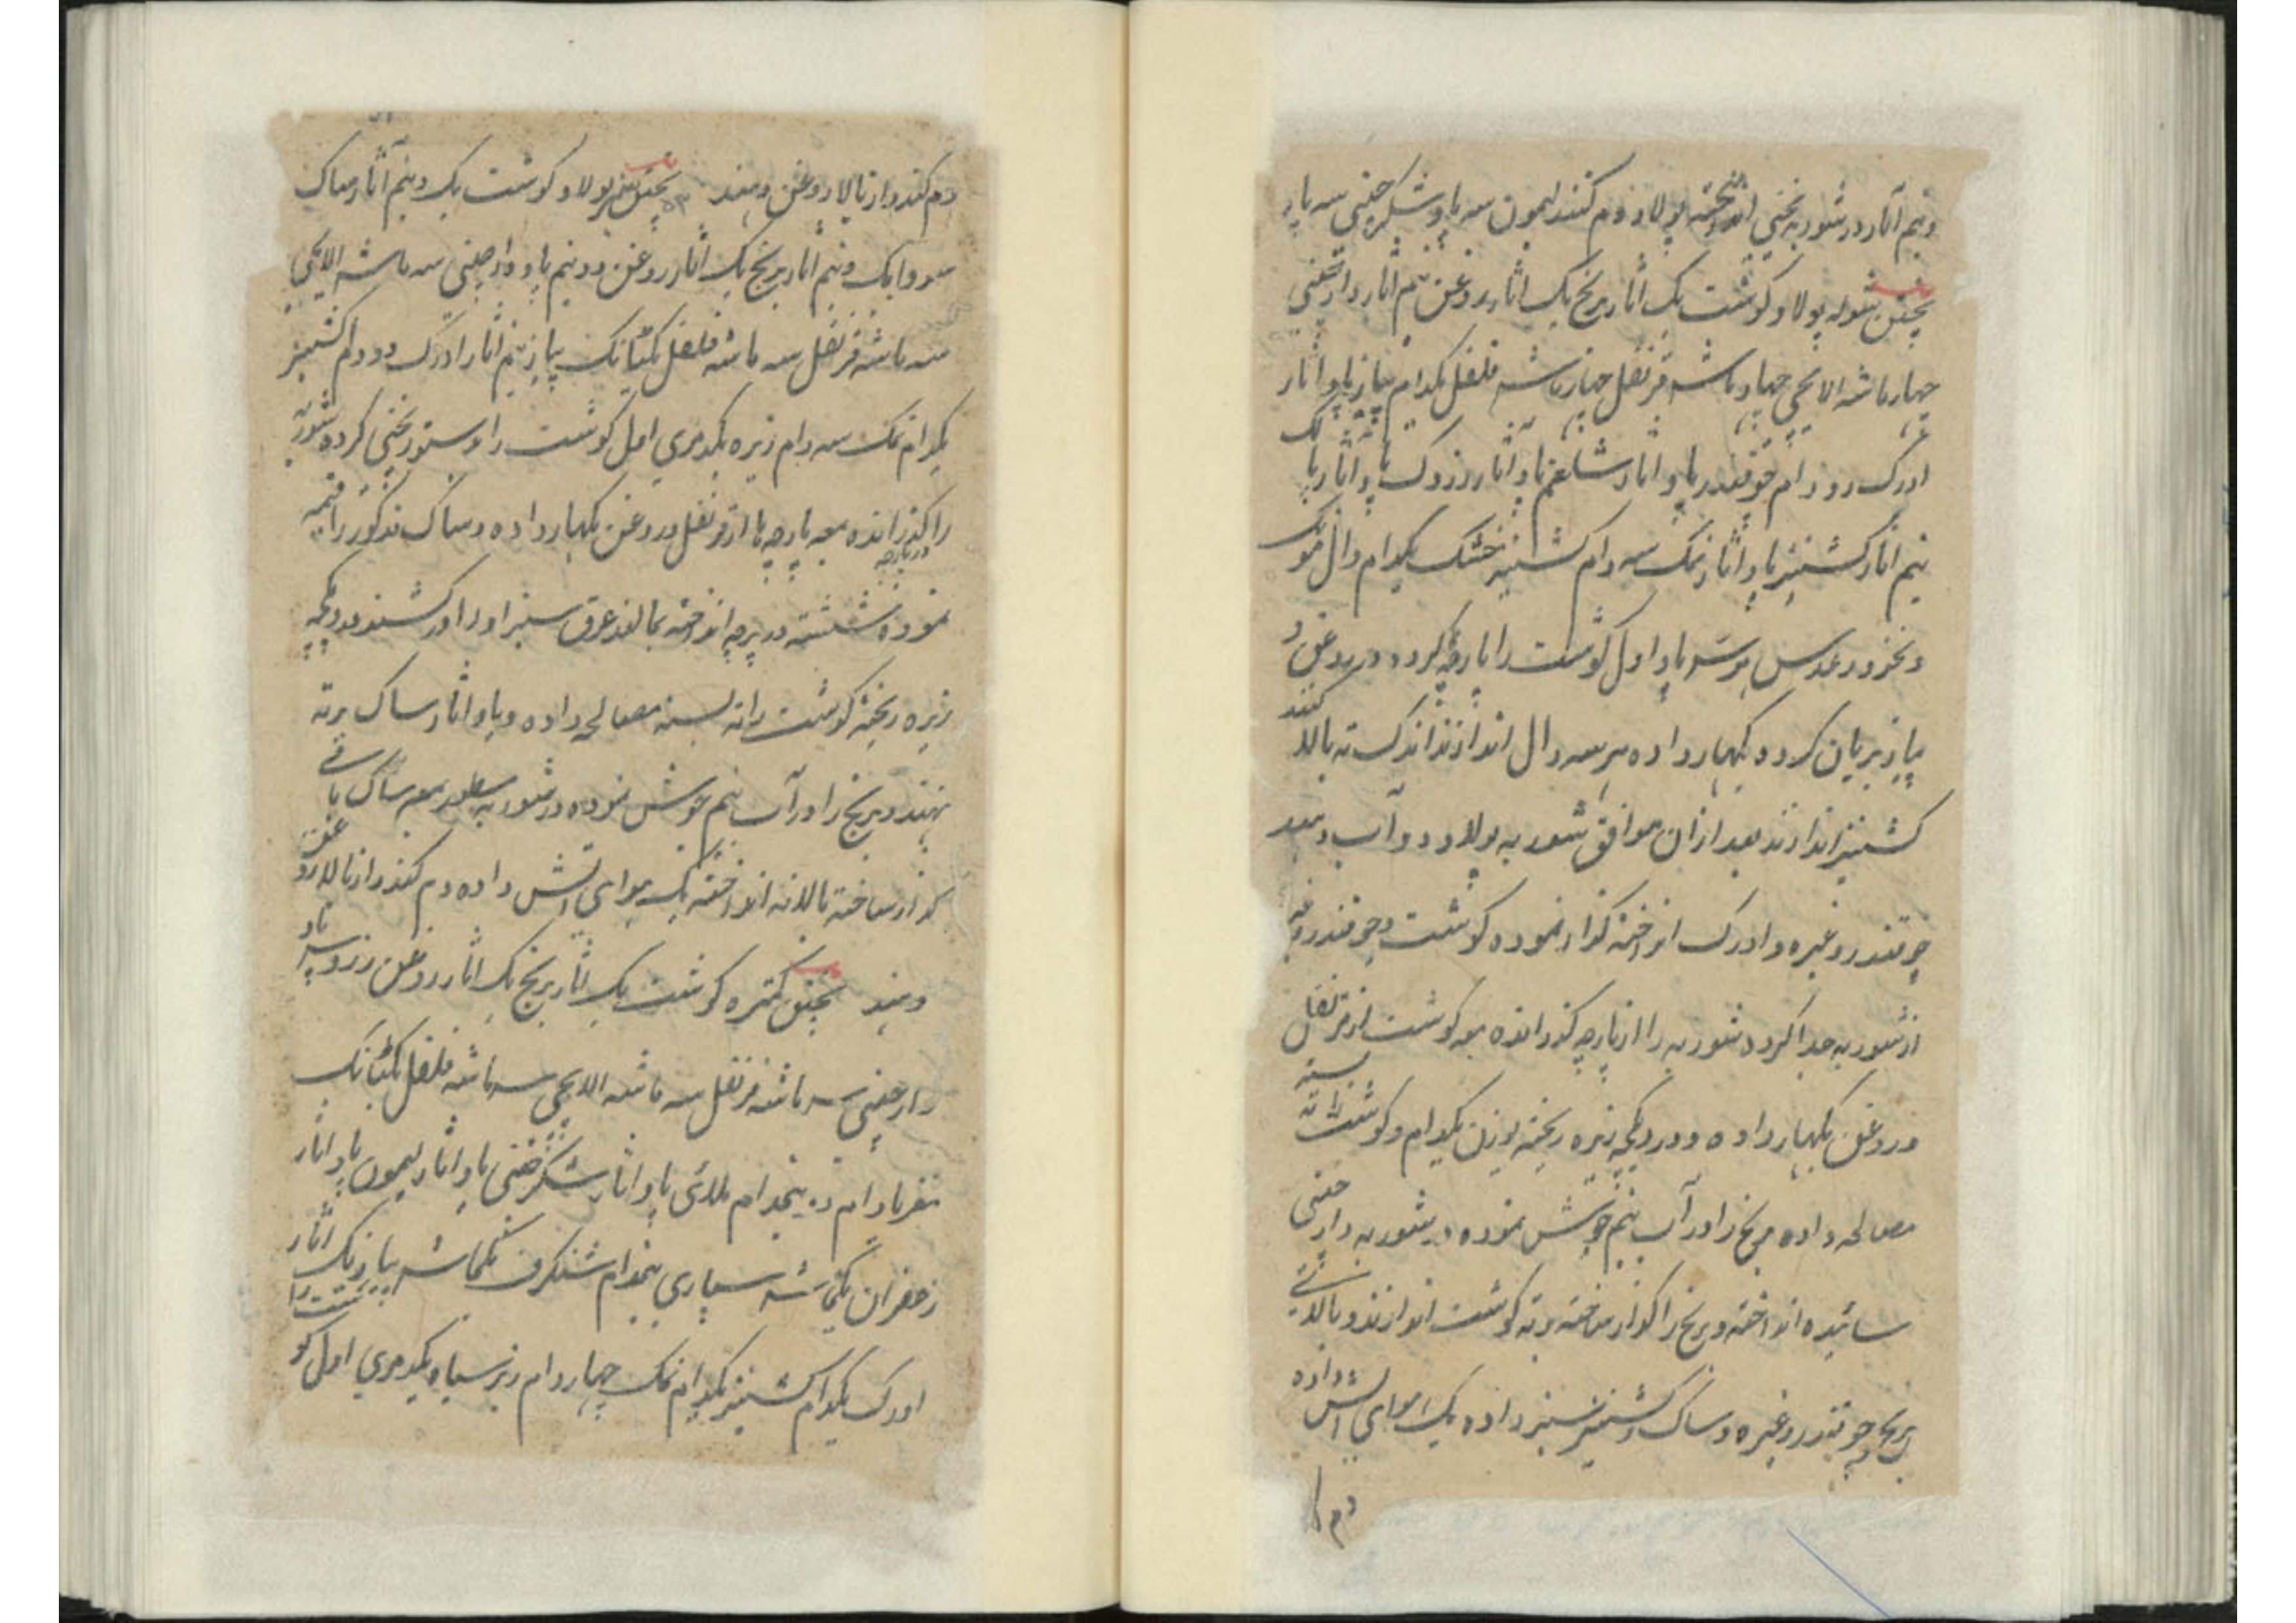 ونیم آثار در شوربه یخنی انداخته پولاو دم کنند لیمون سه پاو شکر چینی سه پاو
پختن شوله پولاو گوشت یک آثار برنج یک آثار روغن نیم آثار دارچینی
چهار ماشه الایچی چهار ماشه قرنفل چهار ماشه فلفل یکدام پیاز پاو آثار
ادرک دو دام چقندر پاو آثار شلغم پاو آثار زردک پاو آثار
نیم آثار کشنیز پاو آثار نمک سه دام کشنیز خشک یکدام دال مونگ
و نخود و عدس پاو اول گوشت را پارچه کرده در روغن و
پیاز بریان کرده بگهار داده هر سه دال اندازند اندک ته بالا کنند
کشنیز اندازند بعد ازان موافق شوربه پولاو دو آب دهند
چقندر وغیره و ادرک انداخته گداز نموده گوشت و چقندر وغیره
از شوربه جدا کرده شوربه را از پارچه گذرانده معه گوشت از قرنفل
در روغن بگهار داده و در دیگچه زیره ریخته بوزن یکدام و گوشت را ته بسته
مصالحه داده برنج را در آب نیم جوش نموده در شوربه دارچینی
سائیده انداخته و برنج را گداز ساخته بر ته گوشت اندازند و بالای
برنج چقندر وغیره و ساک و کشنیز سبز داده یک هوای آتش داده
دم
دم کنند و از بالا روغن دهند پختن سبز پولاو گوشت یک ونیم آثار ساک
سوا یک ونیم آثار برنج یک آثار روغن دو نیم پاو دارچینی سه ماشه الایچی
سه ماشه قرنفل سه ماشه فلفل یکٹانک پیاز نیم آثار ادرک دو دام کشنیز
یکدام نمک سه دام زیره یکدمری اول گوشت را بدستور یخنی کرده شوربه
را گذرانده معه پارچه ها از قرنفل در روغن بگهار داده و ساک مذکور را قیمه
نموده شسته در پارچه انداخته بمالند عرق سبز او را در کشند در دیگچه
زیره ریخته گوشت را ته بسته مصالحه داده و پاو آثار ساک بر ته
نهند و برنج را در آب نیم جوش نموده در شوربه معه ساک باقی
گداز ساخته بالا ته انداخته یک هوای آتش داده دم کنند و از بالا روغن
دهند پختن گوشت یک آثار برنج یک آثار روغن زرد سه پاو
دارچینی سه ماشه قرنفل سه ماشه الایچی سه ماشه فلفل یکٹانک
مغز بادام پنجدام ملائی پاو آثار شکر چینی پاو آثار لیمون پاو آثار
زعفران یکماشه سپاری پنجدام شنگرف یکماشه پیاز یک آثار
ادرک یکدام کشنیز یکدام نمک چهار دام زیره سیاه یکدمری اول گوشت را